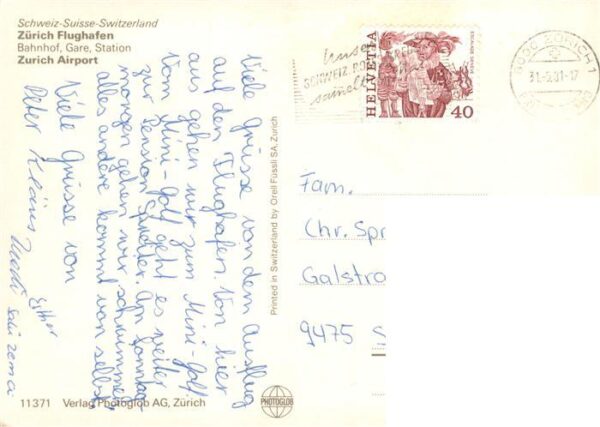 Schweiz-Suisse-Switzerland
Zürich Flughafen
Bahnhof, Gare, Station
Zurich Airport
Viele Grüsse von dem Ausflug
auf den Flughafen. Von hier
aus gehen wir zum Mini-Golf
Vom Mini-Golf geht es weiter
zur Pension Spüeler. Am Sonntag
morgen gehen wir schwimmen
alles andere kommt von selbst.
Viele Grüsse von
Peter Kläus Ruedi Esther
11371 Verlag Photoglob AG, Zürich
Printed in Switzerland by Orell Füssli SA, Zurich
PHOTOGLOB
Unser
SCHWEIZ. ROT
HELVETIA
40
8000 ZÜRICH 1
31.-5.81-17
Fam.
Chr. Spr
Galstro
9475 S